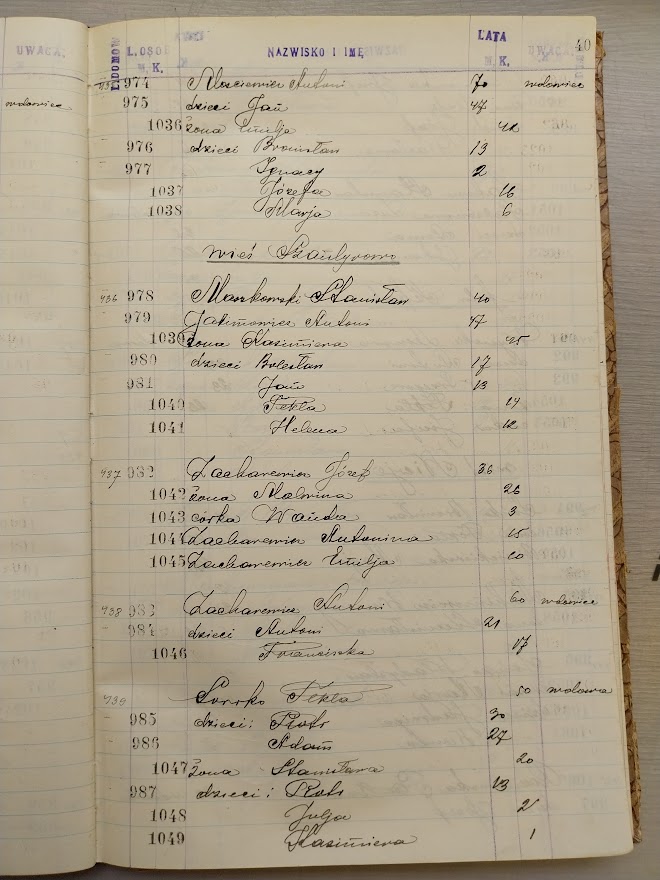 UWAGA.
wdowiec
L. DOMÓW L. OSÓB NAZWISKO I IMĘ LATA UWAGA. 40
M. K. M. K.
435 974 Antoni 70 wdowiec
975 dzieci Jan 47
1036 żona Emilja 42
976 dzieci Bronisław 13
977 Ignacy 2
1037 Józefa 16
1038 Marja 6
wieś
436 978 Mankowski Stanisław 40
979 Jakimowicz Antoni 47
1039 żona Kazimiera 45
980 dzieci Bolesław 17
981 Jan 13
1040 Tekla 14
1041 Helena 12
437 982 Zacharewicz Józef 36
1042 żona Malwina 26
1043 córka Wanda 3
1044 Zacharewicz Antonina 15
1045 Zacharewicz Emilja 20
438 983 Zacharewicz Antoni 60 wdowiec
984 dzieci Antoni 21
1046 Franciszka 17
439 Tekla 50 wdowa
985 dzieci: Piotr 30
986 Adam 27
1047 żona Stanisława 20
987 dzieci: Piotr 13
1048 Julja 2
1049 Kazimiera 1